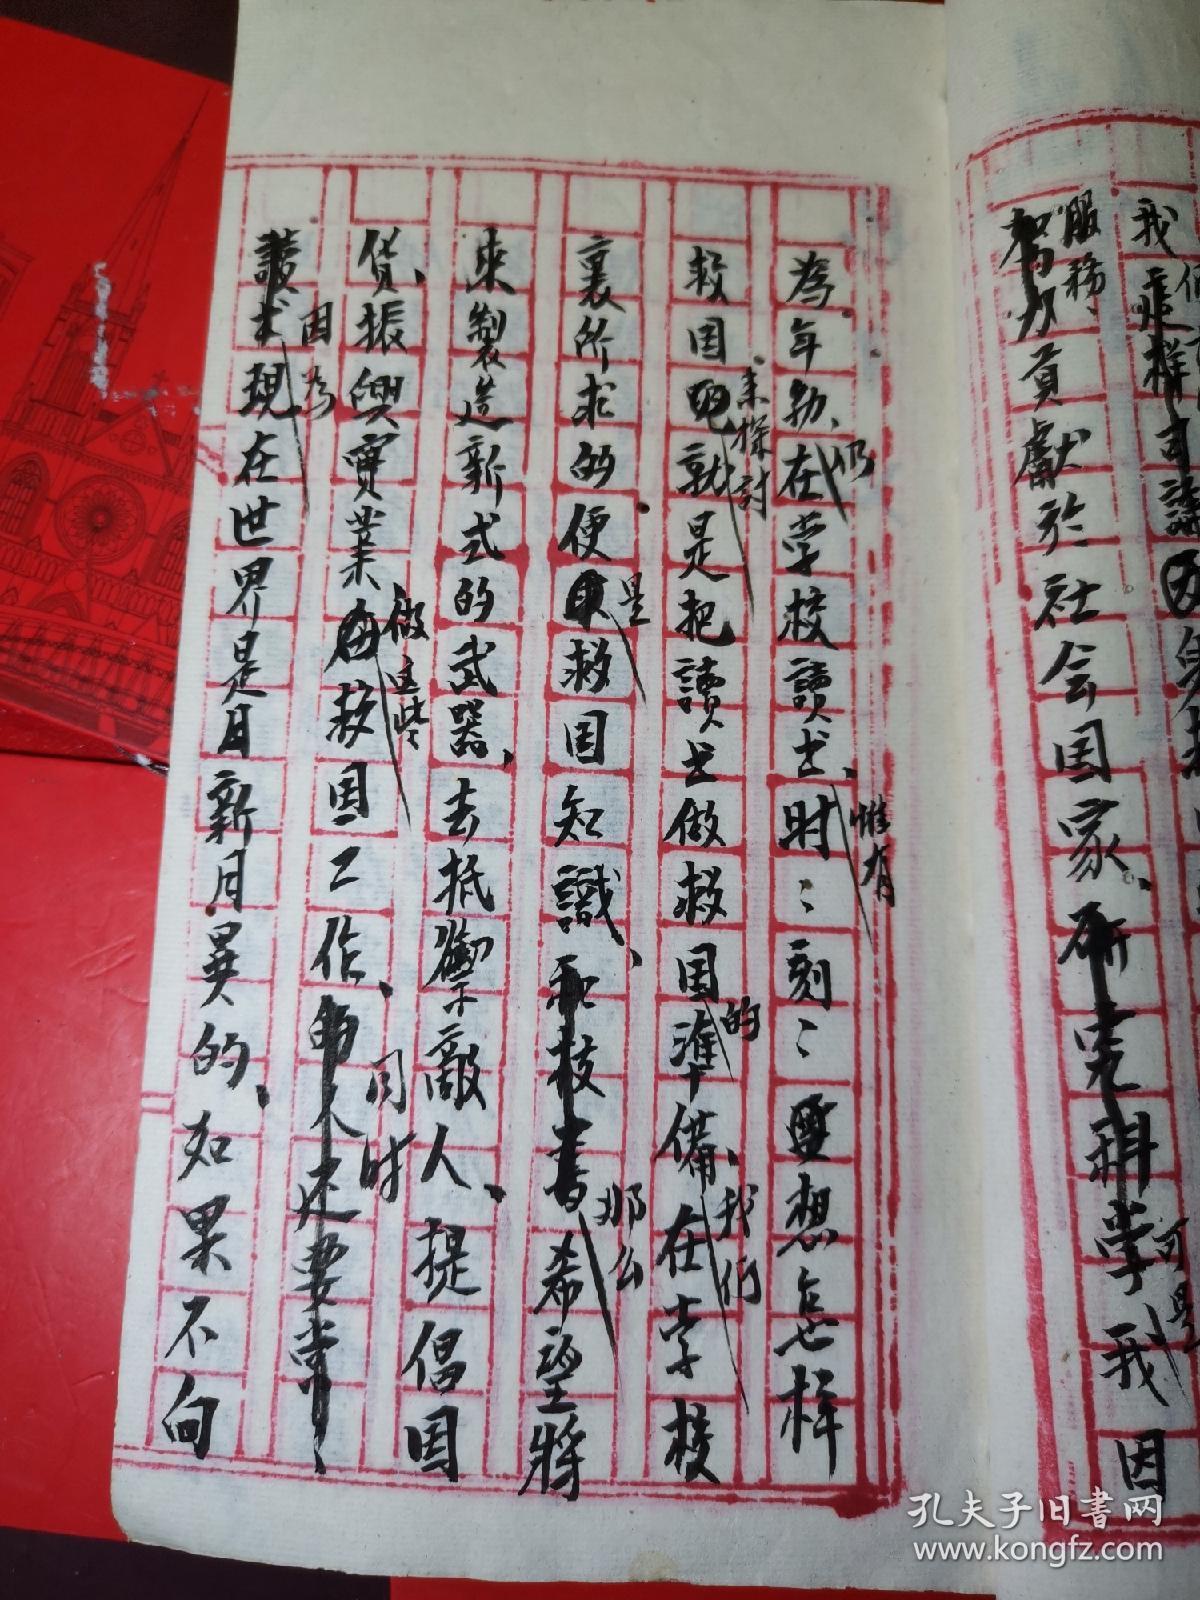 我們
服務
努力貢獻於社会国家、研究科学、我因
可是
為年幼、在学校讀书、时々刻々要想怎样
仍
惟有
救国呢就是把讀书做救国準備、在学校
来探討
的
我们
裏所求的便救国知識、和技希望將
是
那么
來製造新式的武器、去抵禦敵人、提倡国
貨、振興實業救国工作、的人还要常
做这些
同时
讀书現在世界是日新月異的、如果不向
因为
孔夫子旧書网
www.kongfz.com